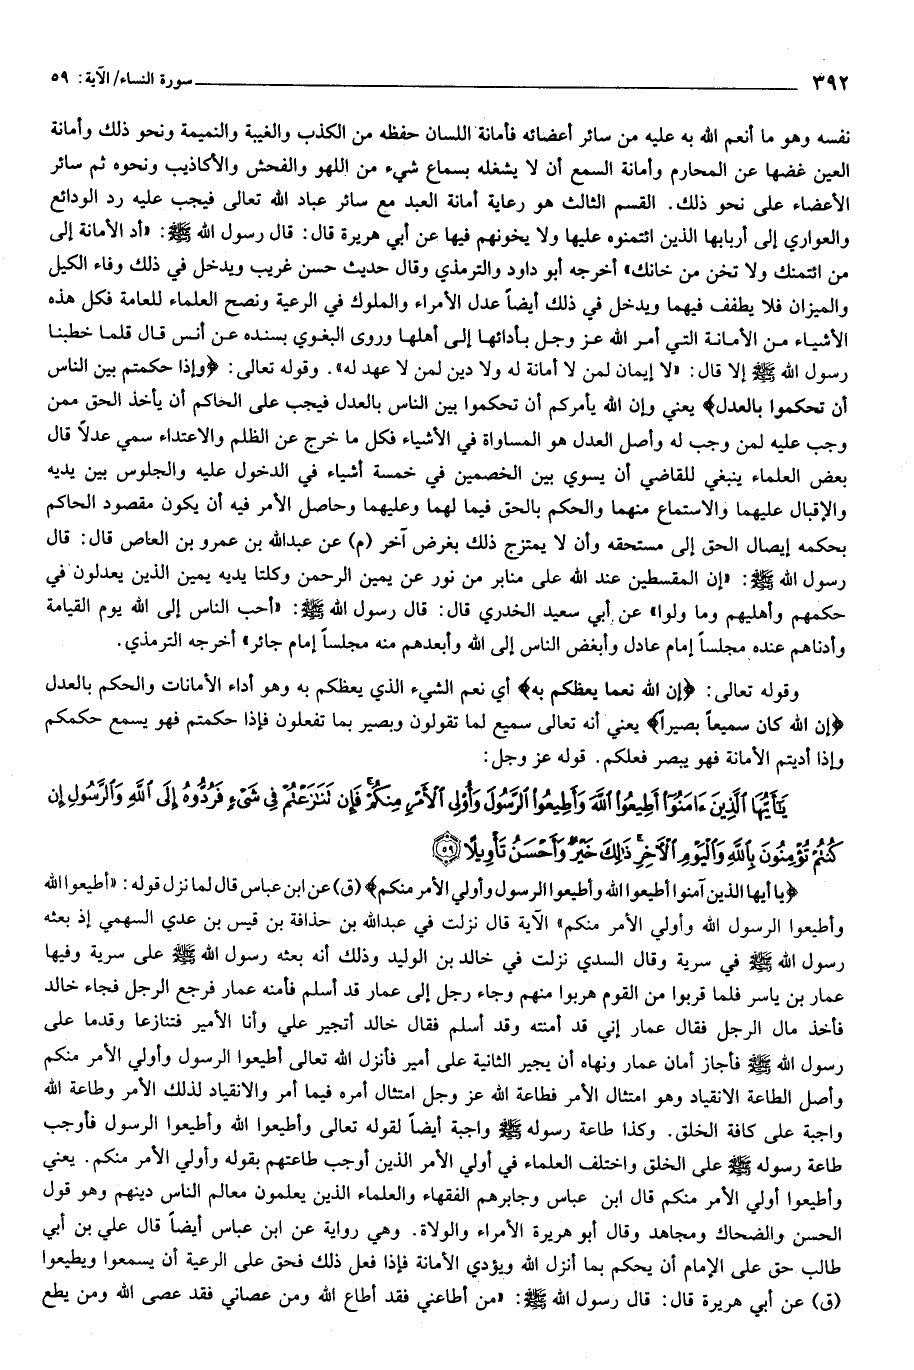 ٣٩٢ سورة النساء/ الآية: ٥٩
نفسه وهو ما أنعم الله به عليه من سائر أعضائه فأمانة اللسان حفظه من الكذب والغيبة والنميمة ونحو ذلك وأمانة
العين غضها عن المحارم وأمانة السمع أن لا يشغله بسماع شيء من اللهو والفحش والأكاذيب ونحوه ثم سائر
الأعضاء على نحو ذلك. القسم الثالث هو رعاية أمانة العبد مع سائر عباد الله تعالى فيجب عليه رد الودائع
والعواري إلى أربابها الذين ائتمنوه عليها ولا يخونهم فيها عن أبي هريرة قال: قال رسول الله ﷺ: «أد الأمانة إلى
من ائتمنك ولا تخن من خانك» أخرجه أبو داود والترمذي وقال حديث حسن غريب ويدخل في ذلك وفاء الكيل
والميزان فلا يطفف فيهما ويدخل في ذلك أيضاً عدل الأمراء والملوك في الرعية ونصح العلماء للعامة فكل هذه
الأشياء من الأمانة التي أمر الله عز وجل بأدائها إلى أهلها وروى البغوي بسنده عن أنس قال قلما خطبنا
رسول الله ﷺ إلا قال: «لا إيمان لمن لا أمانة له ولا دين لمن لا عهد له». وقوله تعالى: ﴿وإذا حكمتم بين الناس
أن تحكموا بالعدل﴾ يعني وإن الله يأمركم أن تحكموا بين الناس بالعدل فيجب على الحاكم أن يأخذ الحق ممن
وجب عليه لمن وجب له وأصل العدل هو المساواة في الأشياء فكل ما خرج عن الظلم والاعتداء سمي عدلاً قال
بعض العلماء ينبغي للقاضي أن يسوي بين الخصمين في خمسة أشياء في الدخول عليه والجلوس بين يديه
والإقبال عليهما والاستماع منهما والحكم بالحق فيما لهما وعليهما وحاصل الأمر فيه أن يكون مقصود الحاكم
بحكمه إيصال الحق إلى مستحقه وأن لا يمتزج ذلك بغرض آخر (م) عن عبدالله بن عمرو بن العاص قال: قال
رسول الله ﷺ: «إن المقسطين عند الله على منابر من نور عن يمين الرحمن وكلتا يديه يمين الذين يعدلون في
حكمهم وأهليهم وما ولوا» عن أبي سعيد الخدري قال: قال رسول الله ﷺ: «أحب الناس إلى الله يوم القيامة
وأدناهم عنده مجلساً إمام عادل وأبغض الناس إلى الله وأبعدهم منه مجلساً إمام جائر» أخرجه الترمذي.
وقوله تعالى: ﴿إن الله نعما يعظكم به﴾ أي نعم الشيء الذي يعظكم به وهو أداء الأمانات والحكم بالعدل
﴿إن الله كان سميعاً بصيراً﴾ يعني أنه تعالى سميع لما تقولون وبصير بما تفعلون فإذا حكمتم فهو يسمع حكمكم
وإذا أديتم الأمانة فهو يبصر فعلكم. قوله عز وجل:
يَٰٓأَيُّهَا ٱلَّذِينَ ءَامَنُوٓا۟ أَطِيعُوا۟ ٱللَّهَ وَأَطِيعُوا۟ ٱلرَّسُولَ وَأُو۟لِى ٱلْأَمْرِ مِنكُمْ ۖ فَإِن تَنَٰزَعْتُمْ فِى شَىْءٍ فَرُدُّوهُ إِلَى ٱللَّهِ وَٱلرَّسُولِ إِن
كُنتُمْ تُؤْمِنُونَ بِٱللَّهِ وَٱلْيَوْمِ ٱلْءَاخِرِ ۚ ذَٰلِكَ خَيْرٌ وَأَحْسَنُ تَأْوِيلًا ٥٩
﴿يا أيها الذين آمنوا أطيعوا الله وأطيعوا الرسول وأولي الأمر منكم﴾ (ق) عن ابن عباس قال لما نزل قوله: «أطيعوا الله
وأطيعوا الرسول الله وأولي الأمر منكم» الآية قال نزلت في عبدالله بن حذافة بن قيس بن عدي السهمي إذ بعثه
رسول الله ﷺ في سرية وقال السدي نزلت في خالد بن الوليد وذلك أنه بعثه رسول الله ﷺ على سرية وفيها
عمار بن ياسر فلما قربوا من القوم هربوا منهم وجاء رجل إلى عمار قد أسلم فأمنه عمار فرجع الرجل فجاء خالد
فأخذ مال الرجل فقال عمار إني قد أمنته وقد أسلم فقال خالد أتجير علي وأنا الأمير فتنازعا وقدما على
رسول الله ﷺ فأجاز أمان عمار ونهاه أن يجير الثانية على أمير فأنزل الله تعالى أطيعوا الرسول وأولي الأمر منكم
وأصل الطاعة الانقياد وهو امتثال الأمر فطاعة الله عز وجل امتثال أمره فيما أمر والانقياد لذلك الأمر وطاعة الله
واجبة على كافة الخلق. وكذا طاعة رسوله ﷺ واجبة أيضاً لقوله تعالى وأطيعوا الله وأطيعوا الرسول فأوجب
طاعة رسوله ﷺ على الخلق واختلف العلماء في أولي الأمر الذين أوجب طاعتهم بقوله وأولي الأمر منكم. يعني
وأطيعوا أولي الأمر منكم قال ابن عباس وجابرهم الفقهاء والعلماء الذين يعلمون معالم الناس دينهم وهو قول
الحسن والضحاك ومجاهد وقال أبو هريرة الأمراء والولاة. وهي رواية عن ابن عباس أيضاً قال علي بن أبي
طالب حق على الإمام أن يحكم بما أنزل الله ويؤدي الأمانة فإذا فعل ذلك فحق على الرعية أن يسمعوا ويطيعوا
(ق) عن أبي هريرة قال: قال رسول الله ﷺ: «من أطاعني فقد أطاع الله ومن عصاني فقد عصى الله ومن يطع